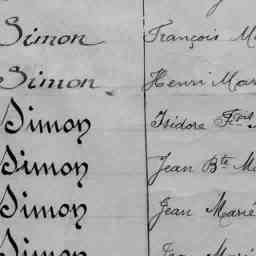 Simon François
Simon Henri
Simon Isidore Fçois
Simon Jean Bte
Simon Jean Marie
Simon